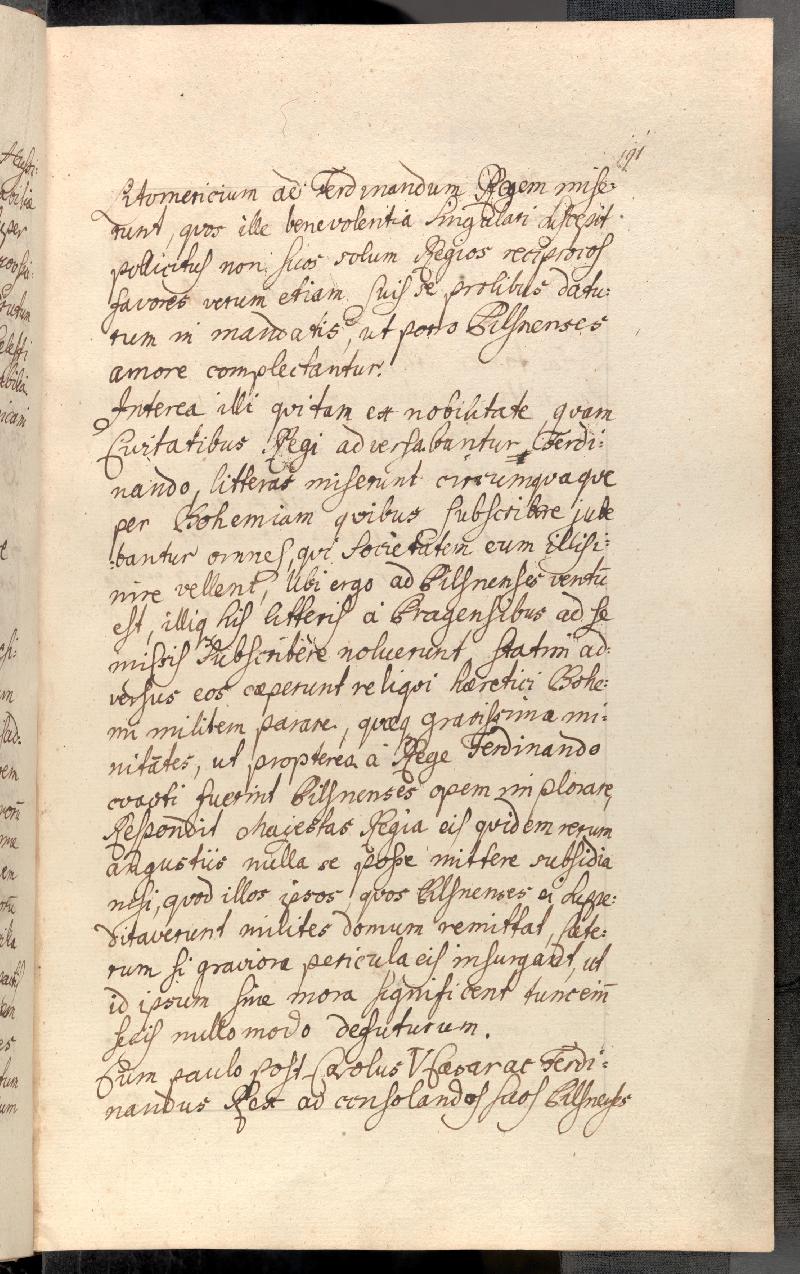 191
Litomericium ad Ferdinandum Regem mise:
runt, quos ille benevolentia singulari suscepit
pollicitus non suos solum Regios reciprocos
favores verum etiam suis se prolibus datu:
rum in mandatis, ut porro Pilsnenses
amore complectantur.
Interea illi qui tam ex nobilitate quam
Civitatibus Regi adversabantur Ferdi:
nando, litteras miserunt circumquaque
per Bohemiam quibus subscribere jube
:bantur omnes, qui Societatem cum illis i:
nire vellent, Ubi ergo ad Pilsnenses ventū
est, illiq his litteris a Pragensibus ad se
missis subscribere noluerunt, statim ad:
versus eos cæperunt reliqui hæretici Bohe:
mi militem parare, quæq gravissimæ mi:
nitātes, ut propterea a Rege Ferdinando
coacti fuerint Pilsnenses opem implorare,
Respondit Majestas Regia eis quidem rerum
angustiis nulla se posse mittere subsidia
nisi, quod illos ipsos quos Pilsnenses ei suppe:
ditaverunt milites domum remittat, cæte:
rum si graviora pericula eis insurgant, ut
id ipsum sine mora significent tunc eim̄
se eis nullo modo defuturum.
Cum paulo post Carolus V Cæsar ac Ferdi:
nandus Rex ad consolandos suos Pilsnenses